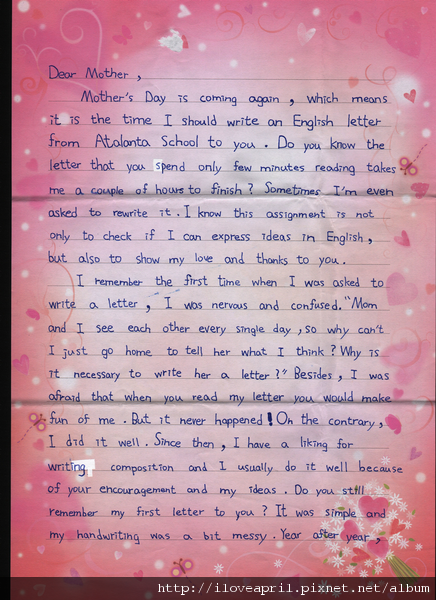 Dear Mother ,
Mother's Day is coming again , which means
it is the time I should write an English letter
from Atalanta School to you . Do you know the
letter that you spend only few minutes reading takes
me a couple of hours to finish ? Sometimes I'm even
asked to rewrite it . I know this assignment is not
only to check if I can express ideas in English ,
but also to show my love and thanks to you .
I remember the first time when I was asked to
write a letter , I was nervous and confused. "Mom
and I see each other every single day , so why can't
I just go home to tell her what I think ? Why is
it necessary to write her a letter ?" Besides , I was
afraid that when you read my letter you would make
fun of me . But it never happened ! On the contrary ,
I did it well . Since then , I have a liking for
writing composition and I usually do it well because
of your encouragement and my ideas . Do you still
remember my first letter to you ? It was simple and
my handwriting was a bit messy . Year after year ,
http://iloveapril.pixnet.net/album